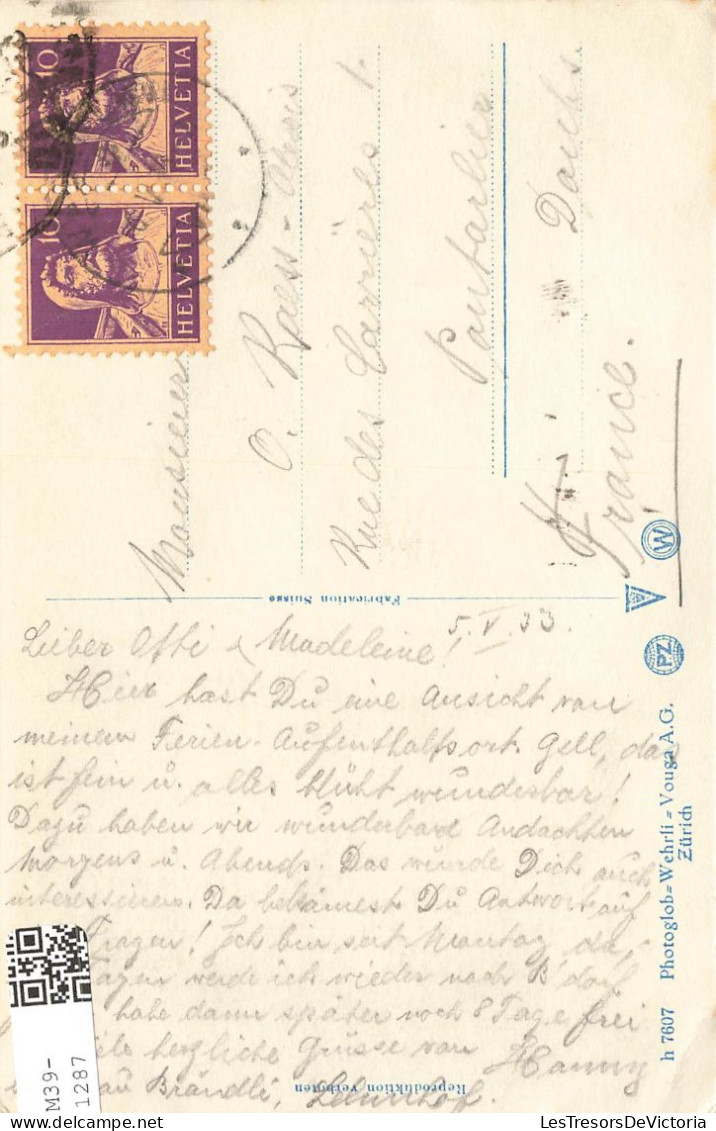 10
HELVETIA
10
HELVETIA
Monsieur
O. Raess - Alexis
Rue des Carrières 1.
Pontarlier
Doubs.
France.
Fabrication Suisse
V
W
PZ
5. V. 33.
Lieber Otti & Madeleine!
Hier hast Du eine Ansicht von
meinem Ferien-Aufenthaltsort. Gell, das
ist fein u. alles blüht wunderbar!
Dazu haben wir wunderbare Andachten
Morgens u. Abends. Das würde Dich auch
interessieren. Da bekämest Du Antwort auf
Fragen! Ich bin seit Montag da,
Tagen werde ich wieder nach B'dorf
habe dann später noch 8 Tage frei
herzliche Grüsse von Hanny
Brändli,
h 7607 Photoglob=Wehrli=Vouga A.G.
Zürich
Reproduktion verboten
M39-
1287
LesTresorsDeVictoria